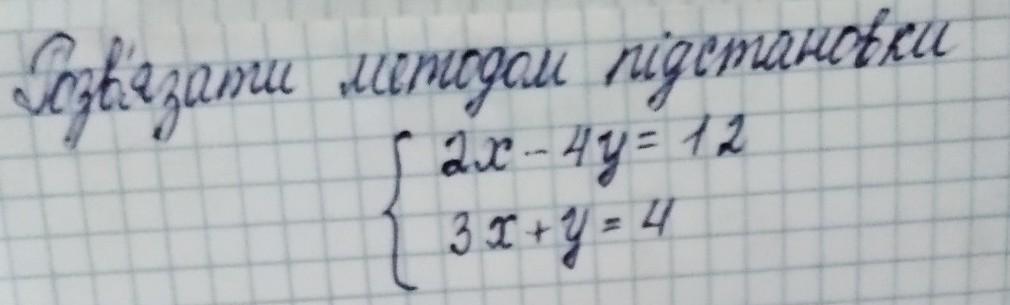 Розв'язати методом підстановки
2x - 4y = 12
3x + y = 4